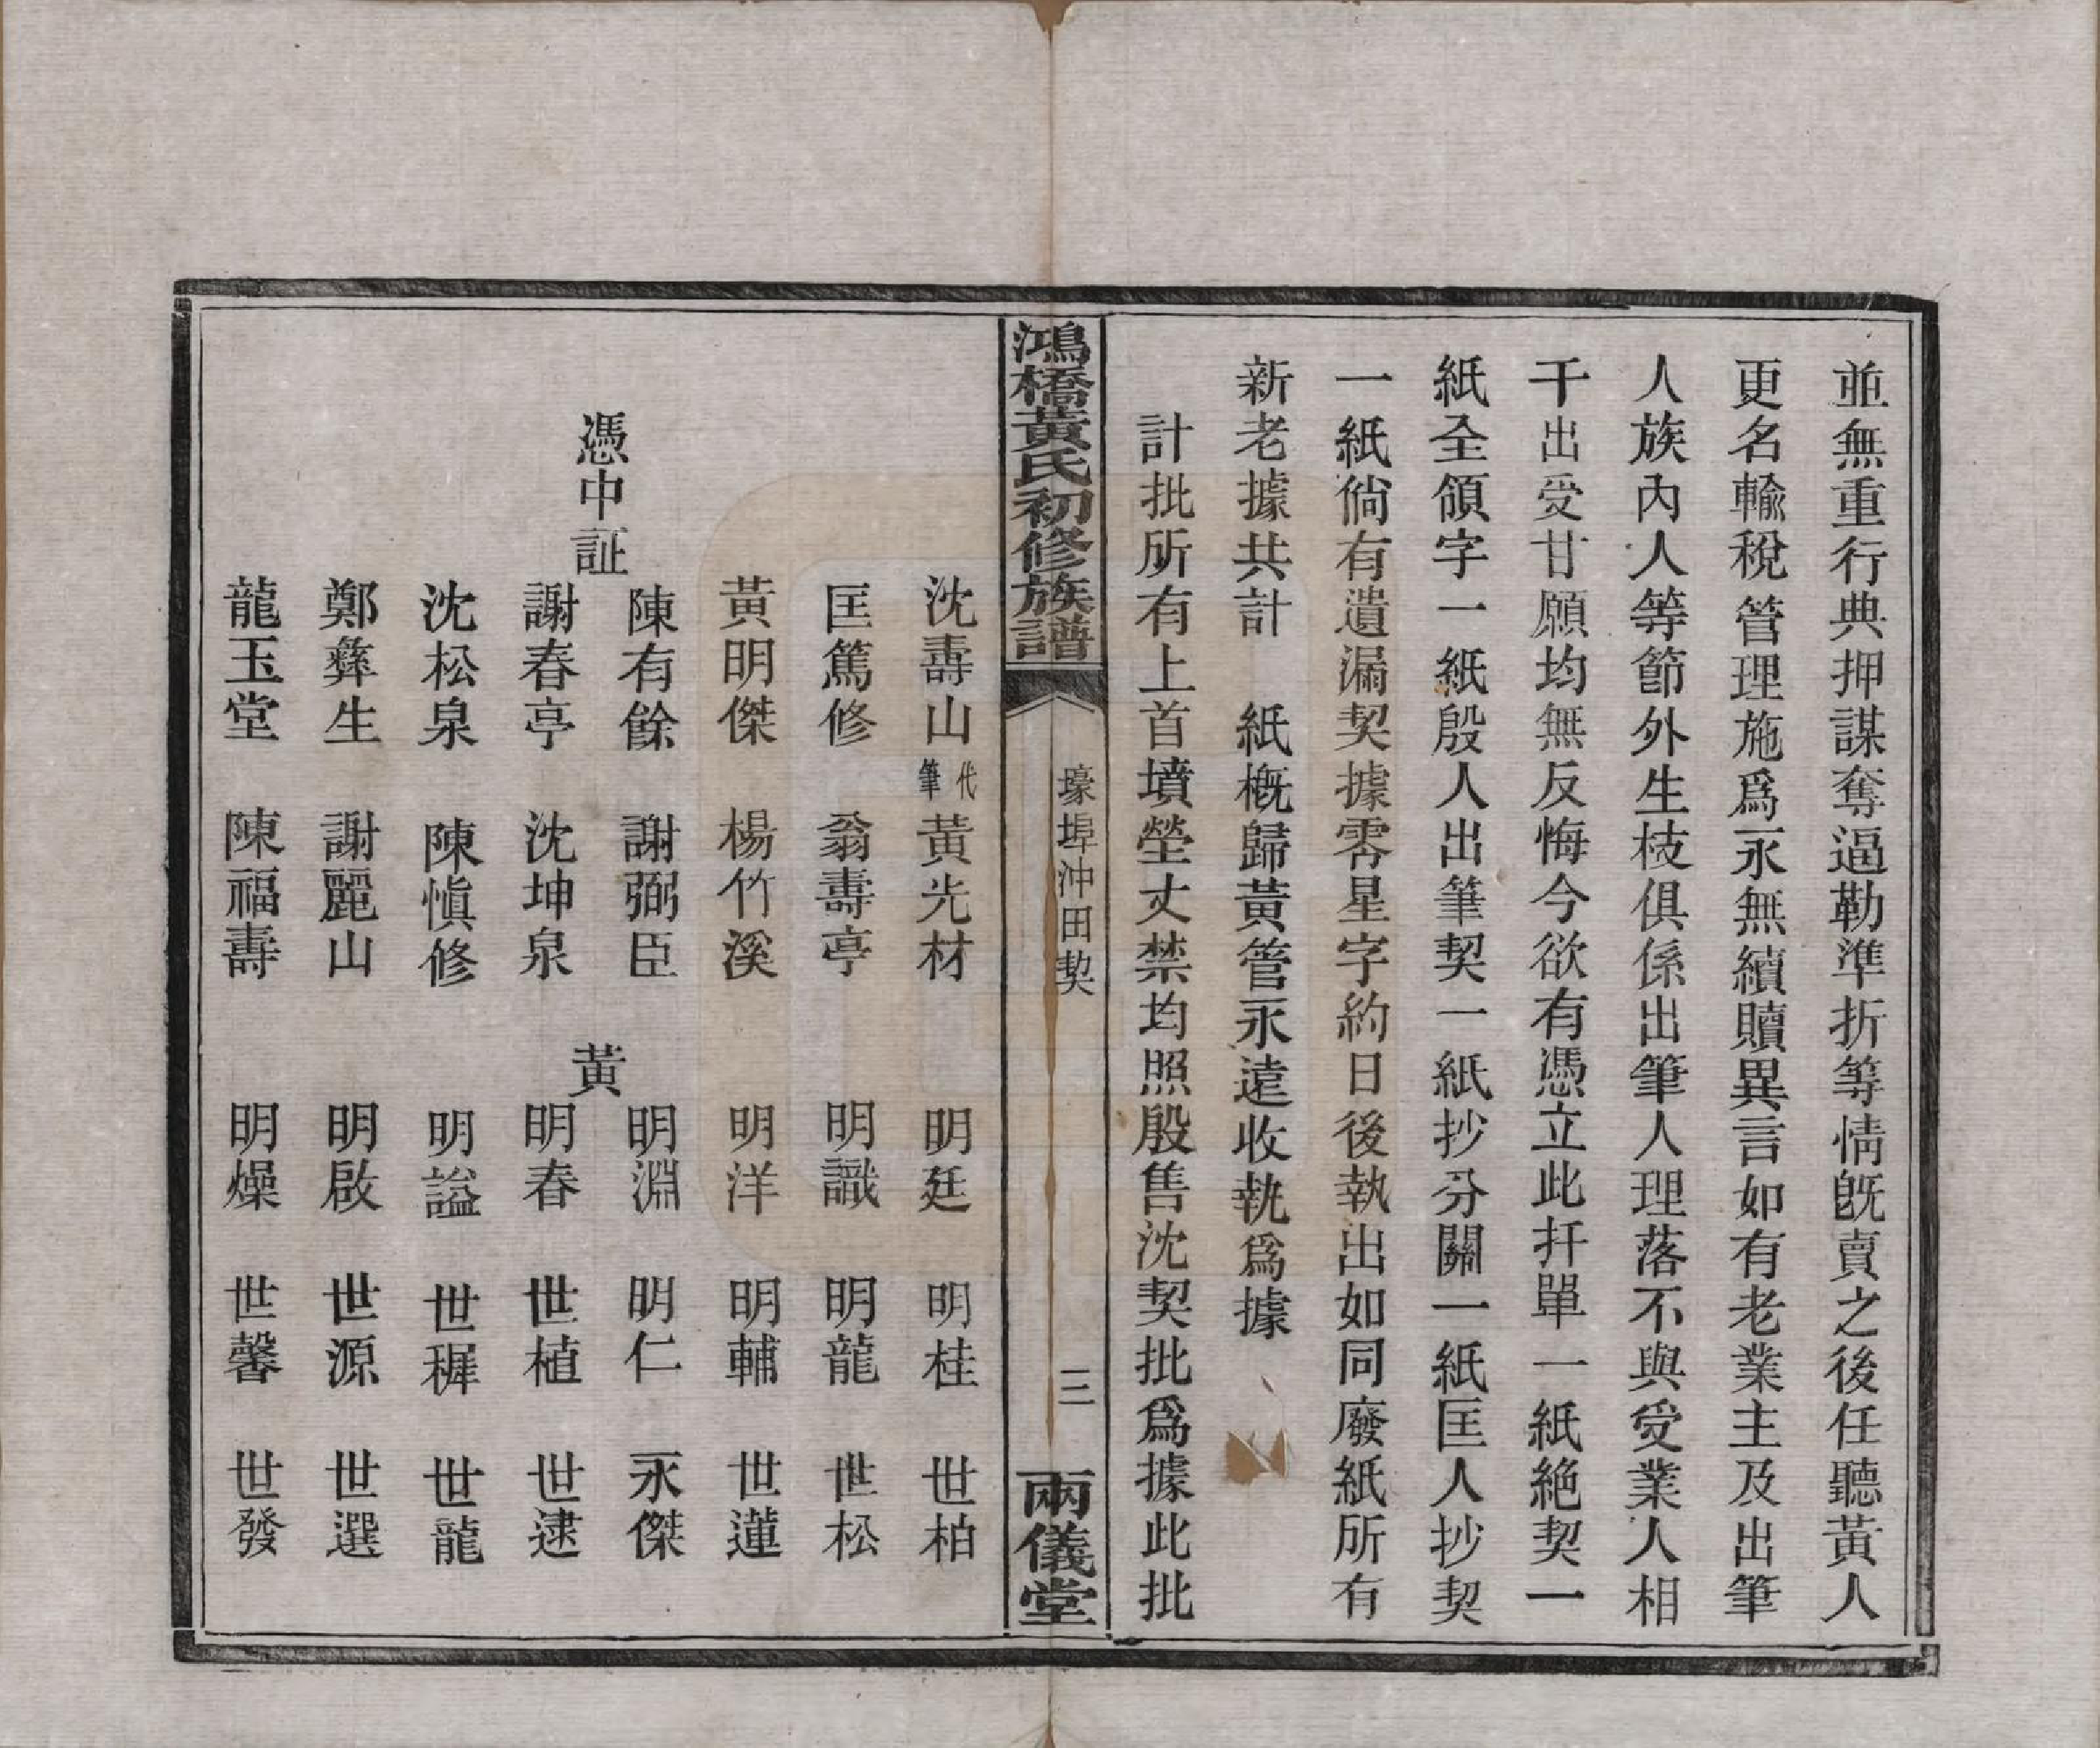 並無重行典押謀奪逼勒準折等情旣賣之後任聽黃人
更名輸稅管理施爲永無續贖異言如有老業主及出筆
人族內人等節外生枝俱係出筆人理落不與受業人相
干出受甘願均無反悔今欲有憑立此扦單一紙絶契一
紙全領字一紙殷人出筆契一紙抄分關一紙匡人抄契
一紙倘有遺漏契據零星字約日後執出如同廢紙所有
新老據共計 紙槪歸黃管永遠收執爲據
計批所有上首墳塋丈禁均照殷售沈契批爲據此批
鴻橋黃氏初修族譜
壕埠沖田契
三
兩儀堂
沈壽山代筆 黃光材 明廷 明桂 世柏
匡篤修 翁壽亭 明識 明龍 世松
黃明傑 楊竹溪 明洋 明輔 世蓮
陳有餘 謝弼臣 明淵 明仁 永傑
憑中証 黃
謝春亭 沈坤泉 明春 世植 世逮
沈松泉 陳愼修 明謚 世樨 世龍
鄭彝生 謝麗山 明啟 世源 世選
龍玉堂 陳福壽 明燥 世馨 世發